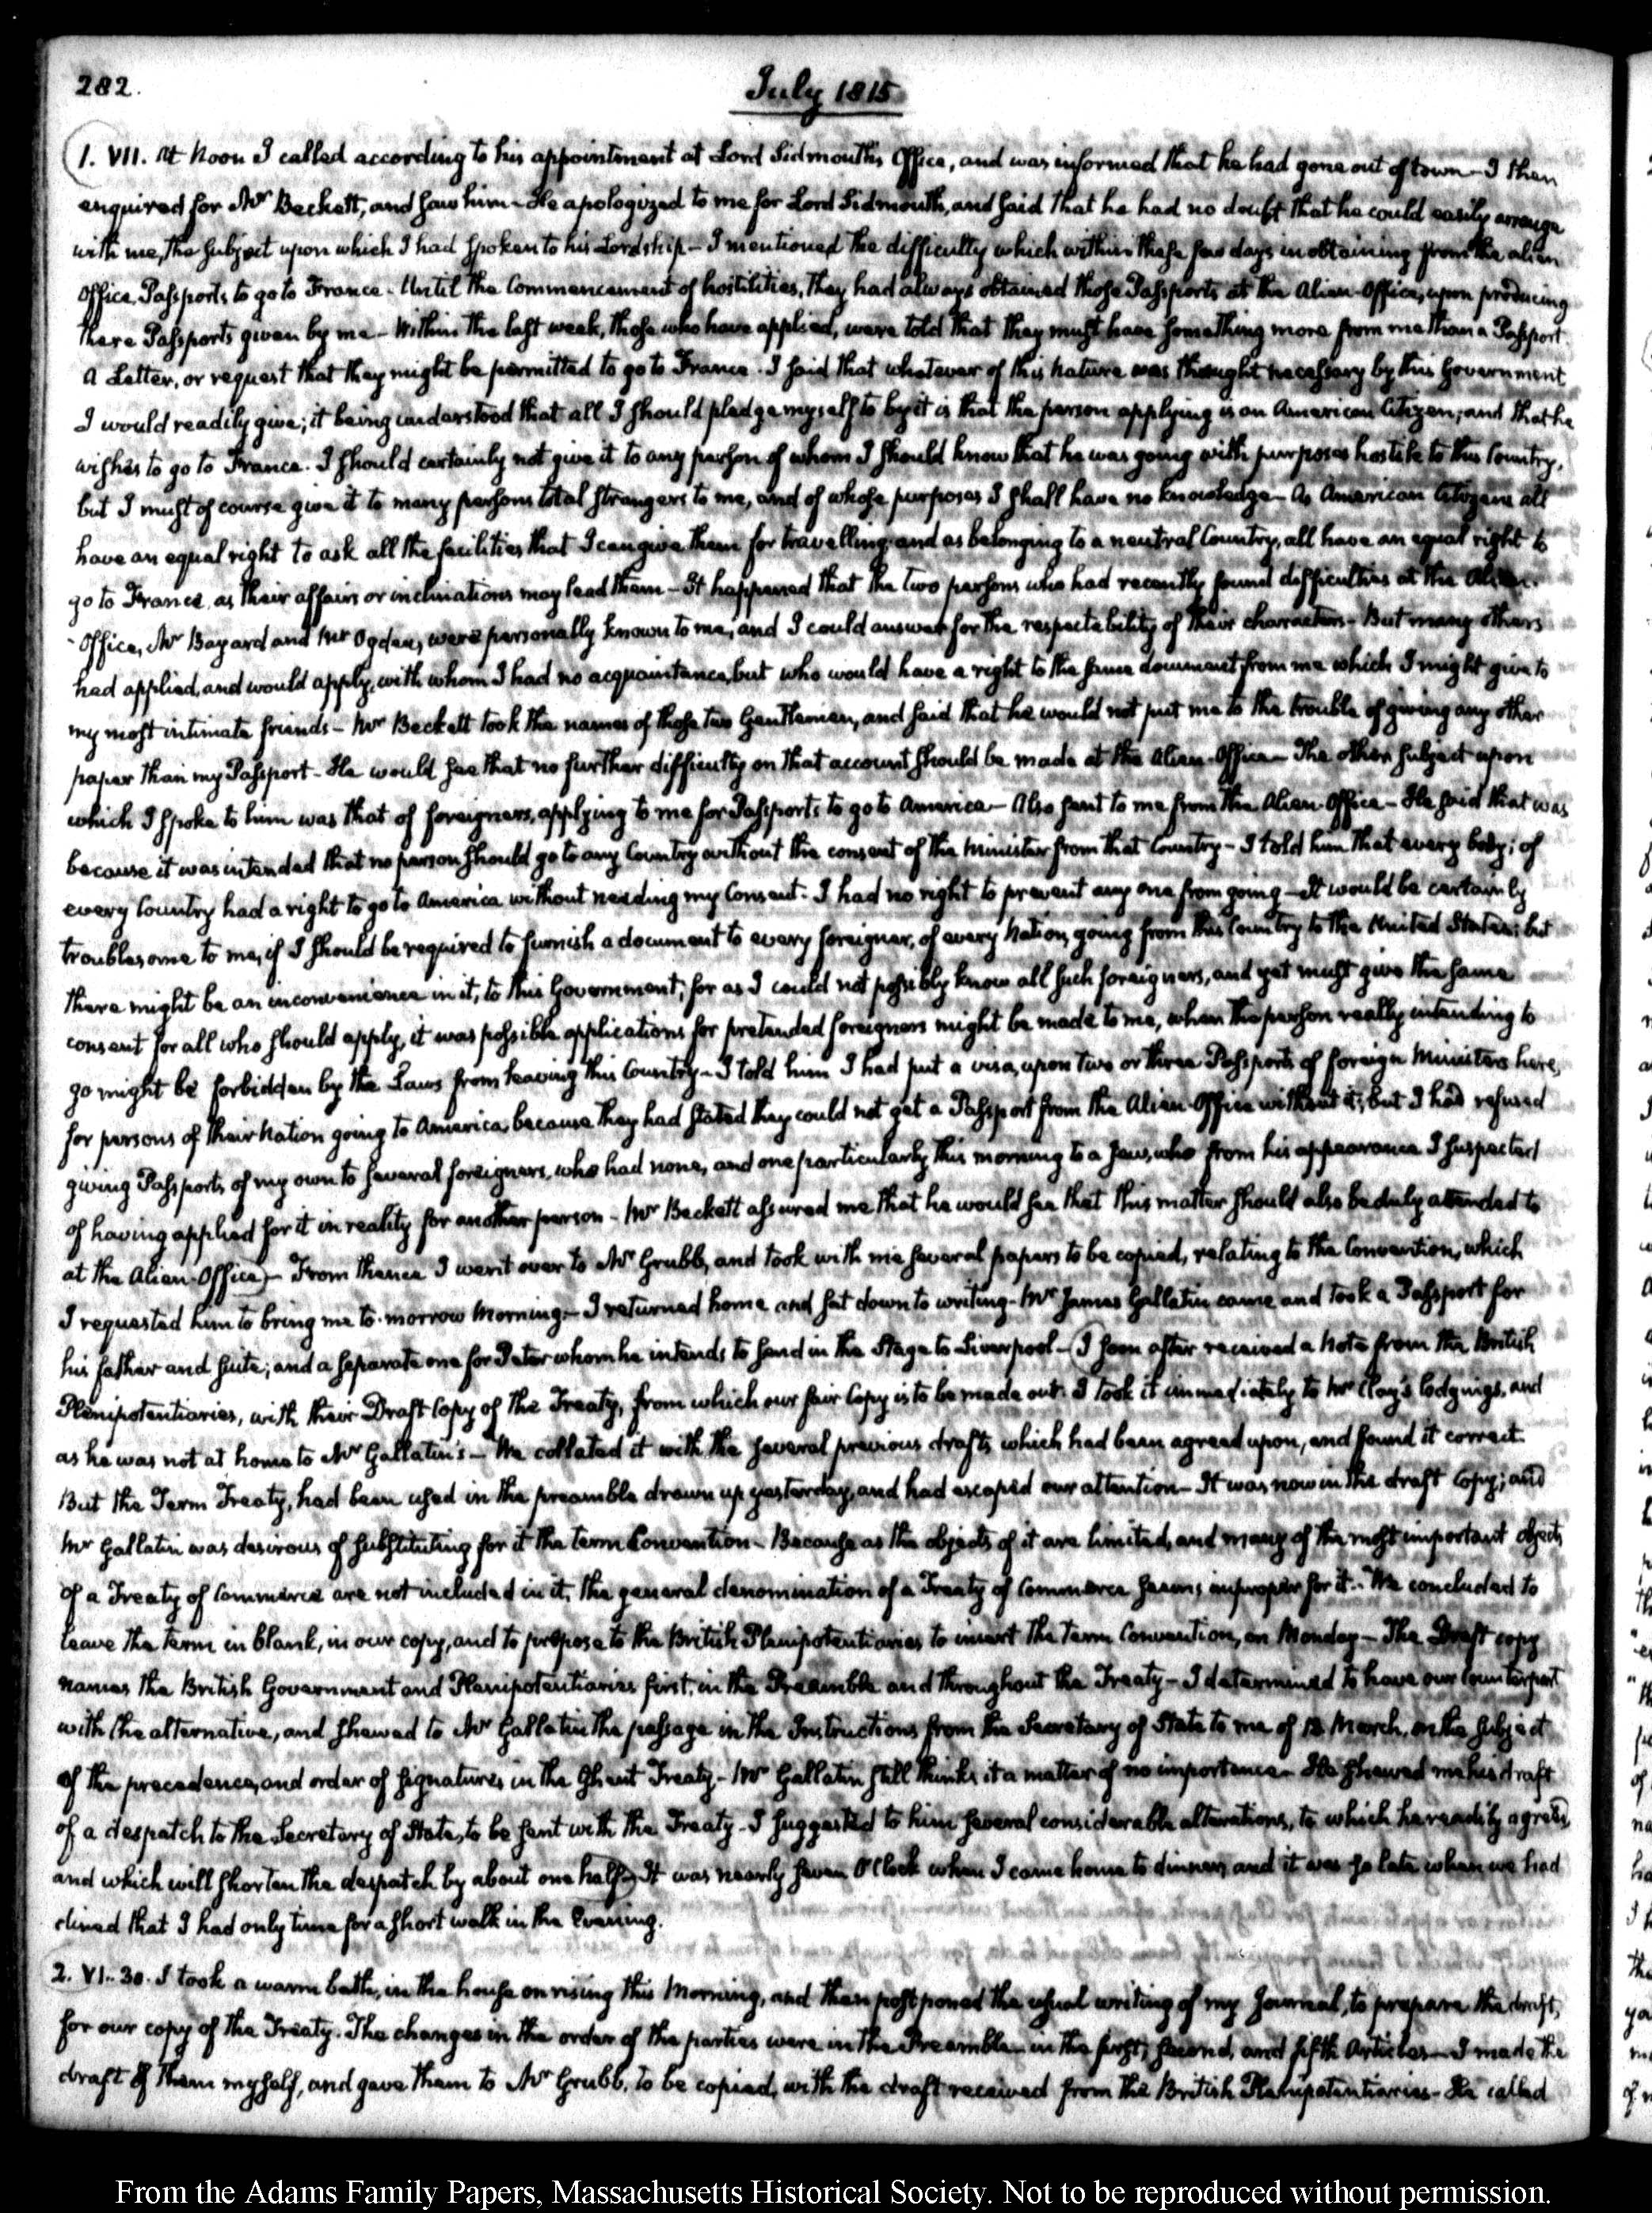 282.
July 1815
1. VII. At Noon I called according to his appointment at Lord Sidmouth's Office, and was informed that he had gone out of town — I then
enquired for Mr Beckett, and saw him — He apologized to me for Lord Sidmouth, and said that he had no doubt that he could easily arrange
with me, the subject upon which I had spoken to his Lordship — I mentioned the difficulty which within these few days in obtaining from the alien
Office, Passports to go to France. Until the Commencement of hostilities, they had always obtained those Passports at the Alien-Office, upon producing
there Passports given by me — Within the last week, those who have applied, were told that they must have something more from me than a Passport.
A Letter, or request that they might be permitted to go to France. I said that whatever of this nature was thought necessary by this Government
I would readily give; it being understood that all I should pledge myself to by it is that the person applying is an American Citizen; and that he
wishes to go to France. I should certainly not give it to any person of whom I should know that he was going with purposes hostile to this Country,
but I must of course give it to many persons total strangers to me, and of whose purposes I shall have no knowledge — As American Citizens all
have an equal right to ask all the facilities that I can give them for travelling and as belonging to a neutral Country, all have an equal right to
go to France, as their affairs or inclinations may lead them — It happened that the two persons who had recently found difficulties at the Alien-
Office, Mr Bayard and Mr Ogden, were personally known to me, and I could answer for the respectability of their characters — But many others
had applied, and would apply, with whom I had no acquaintance, but who would have a right to the same document from me which I might give to
my most intimate friends — Mr Beckett took the names of those two Gentlemen, and said that he would not put me to the trouble of giving any other
paper than my Passport — He would see that no further difficulty on that account should be made at the Alien-Office — The other subject upon
which I spoke to him was that of foreigners, applying to me for Passports to go to America — Also sent to me from the Alien-Office — He said that was
because it was intended that no person should go to any Country without the consent of the Minister from that Country — I told him that every body; of
every Country had a right to go to America without needing my Consent. I had no right to prevent any one from going — It would be certainly
troublesome to me, if I should be required to furnish a document to every foreigner, of every Nation, going from this Country to the United States; but
there might be an inconvenience in it, to this Government; for as I could not possibly know all such foreigners, and yet must give the same
consent for all who should apply, it was possible applications for pretended foreigners might be made to me, when the person really intending to
go might be forbidden by the Laws from leaving this Country — I told him I had put a visa, upon two or three Passports of foreign Ministers here,
for persons of their Nation going to America, because they had stated they could not get a Passport from the Alien-Office without it; but I had refused
giving Passports of my own to several foreigners, who had none, and one particularly this morning to a Jew, who from his appearance I suspected
of having applied for it in reality for another person — Mr Beckett assured me that he would see that this matter should also be duly attended to
at the Alien-Office) — From thence I went over to Mr Grubb, and took with me several papers to be copied, relating to the Convention, which
I requested him to bring me to-morrow Morning — I returned home and sat down to writing — Mr James Gallatin came and took a Passport for
his father and suite; and a separate one for Peter whom he intends to send in the Stage to Liverpool — (I soon after received a Note from the British
Plenipotentiaries, with their Draft Copy of the Treaty, from which our fair Copy is to be made out. I took it immediately to Mr Clay's lodgings, and
as he was not at home to Mr Gallatin's — We collated it with the several previous drafts which had been agreed upon, and found it correct.
But the Term Treaty, had been used in the preamble drawn up yesterday, and had escaped our attention — It was now in the draft Copy; and
Mr Gallatin was desirous of substituting for it the term Convention — Because as the objects of it are limited, and many of the most important objects
of a Treaty of Commerce are not included in it, the general denomination of a Treaty of Commerce seems improper for it. We concluded to
leave the term in blank, in our copy, and to propose to the British Plenipotentiaries to insert the term Convention, on Monday — The Draft copy
names the British Government and Plenipotentiaries first, in the Preamble and throughout the Treaty — I determined to have our Counterpart
with the alternative, and shewed to Mr Gallatin the passage in the Instructions from the Secretary of State to me of 13 March, on the subject
of the precedence, and order of signatures in the Ghent Treaty — Mr Gallatin still thinks it a matter of no importance — He shewed me his draft
of a despatch to the Secretary of State, to be sent with the Treaty — I suggested to him several considerable alterations, to which he readily agreed,
and which will shorten the despatch by about one half) — It was nearly seven O'Clock when I came home to dinner, and it was so late when we had
dined that I had only time for a short walk in the Evening.
2. VI:30. I took a warm bath, in the house on rising this Morning, and then postponed the usual writing of my Journal, to prepare the draft,
for our copy of the Treaty. The changes in the order of the parties were in the Preamble — in the first, second, and fifth Articles — I made the
draft of them myself, and gave them to Mr Grubb, to be copied, with the draft received from the British Plenipotentiaries — He called
From the Adams Family Papers, Massachusetts Historical Society. Not to be reproduced without permission.